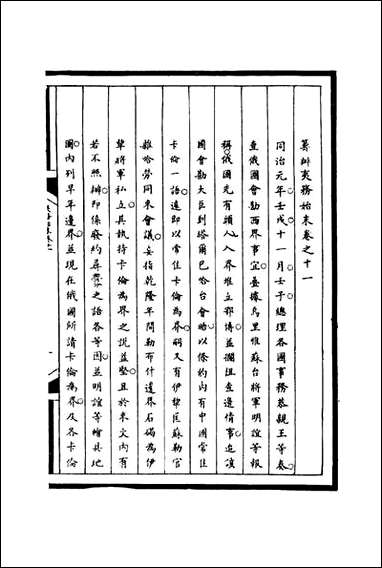 筭辦夷務始末卷之十一
同治元年壬戌十一月壬子總理各國事務恭親王等奏
查俄國會勘西界事宜疊據烏里雅蘇台將軍明誼等報
稱俄國先有頭人入界堆立鄂博並攔阻查邊情事迨該
國會勘大臣到塔爾巴哈台會晤以條約內有中國常住
卡倫一語遂即以常住卡倫為界嗣又有伊犂匡蘇勒官
雜哈勞同來會議妄指乾隆年間勒布什邊界石碣為伊
犂將軍私立其執持卡倫為界之說並堅且於來文內有
若不照辦即係廢約尋釁之語各等因並明誼等繪具地
圖內列早年邊界並現在俄國所請卡倫為界及各卡倫